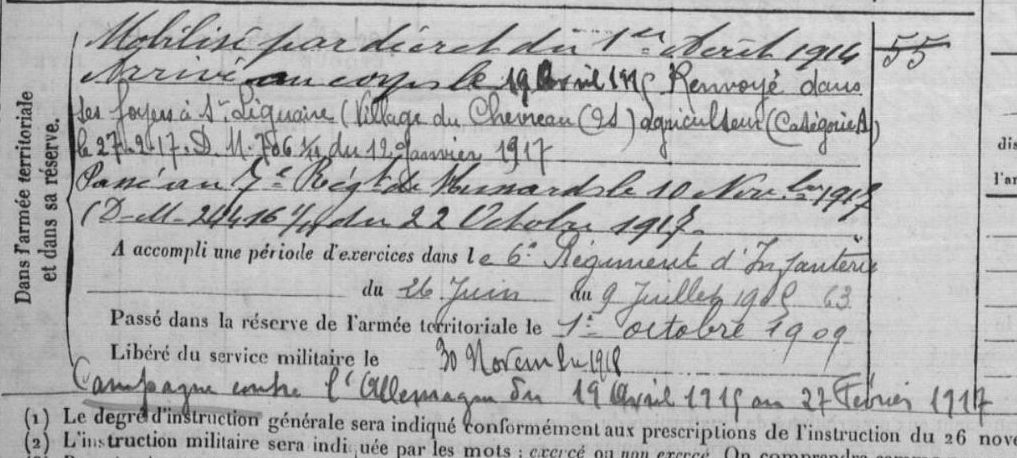 Mobilisé par décret du 1er Août 1914 55
Arrivé au corps le 19 Avril 1915 Renvoyé dans
ses foyers à St Liguaire (Village du Chevreau (2S) agriculteur (Catégorie A)
le 27-2-17. D. M. 706 1/11 du 12 Janvier 1917
Passé au 7e Régt de Hussards le 10 Novbre 1917
(D-M- 24416 1/11 du 22 Octobre 1917.
Dans l'armée territoriale
et dans sa réserve.
A accompli une période d'exercices dans le 6e Régiment d'Infanterie
du 26 Juin au 9 Juillet 1905 63
Passé dans la réserve de l'armée territoriale le 1er octobre 1909
Libéré du service militaire le 30 Novembre 1918
Campagne contre l'Allemagne du 19 Avril 1915 au 27 Février 1917
(1) Le degré d'instruction générale sera indiqué conformément aux prescriptions de l'instruction du 26 nove
(2) L'instruction militaire sera indiquée par les mots : exercé ou non exercé. On comprendra comme
dis
l'ar